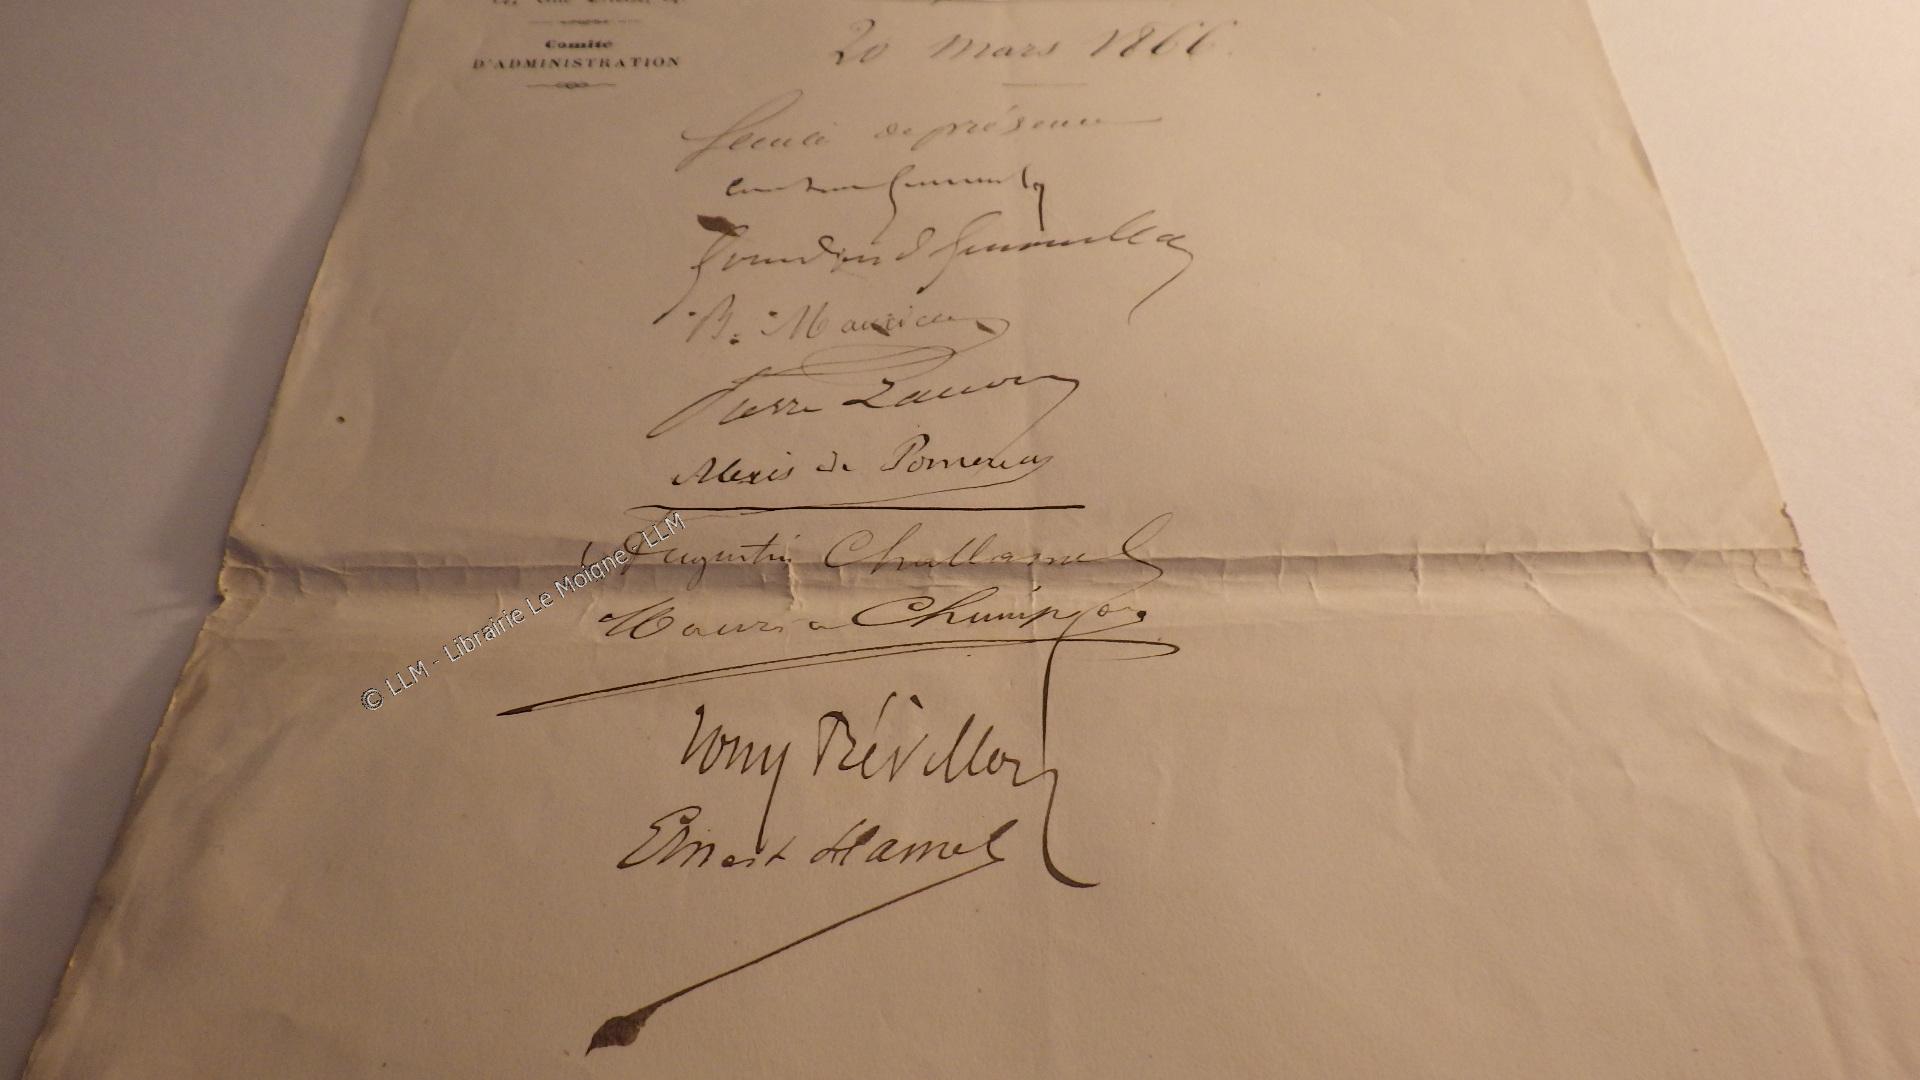 Comité
D'ADMINISTRATION
20 Mars 1866
feuille de présence
Gourdon de Genouillac
Pierre Zaccone
Alexis de Pomereu
Augustin Challamel
Maurice Champion
Tony Révillon
Ernest Hamel
© LLM - Librairie Le Moigne - LLM